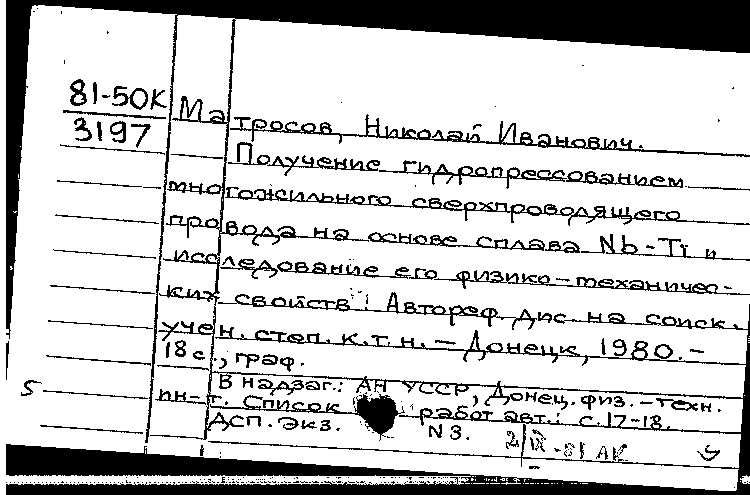 81-50К
3197
Матросов, Николай Иванович.
Получение гидропрессованием
многожильного сверхпроводящего
провода на основе сплава Nb-Ti и
исследование его физико-механичес-
ких свойств: Автореф. дис. на соиск.
учен. степ. к.т.н. – Донецк, 1980. –
18 с., граф.
В надзаг.: АН УССР, Донец. физ.-техн.
ин-т. Список работ авт.: с. 17-18.
ДСП. Экз. N 3.
5
2/IX-81 АК